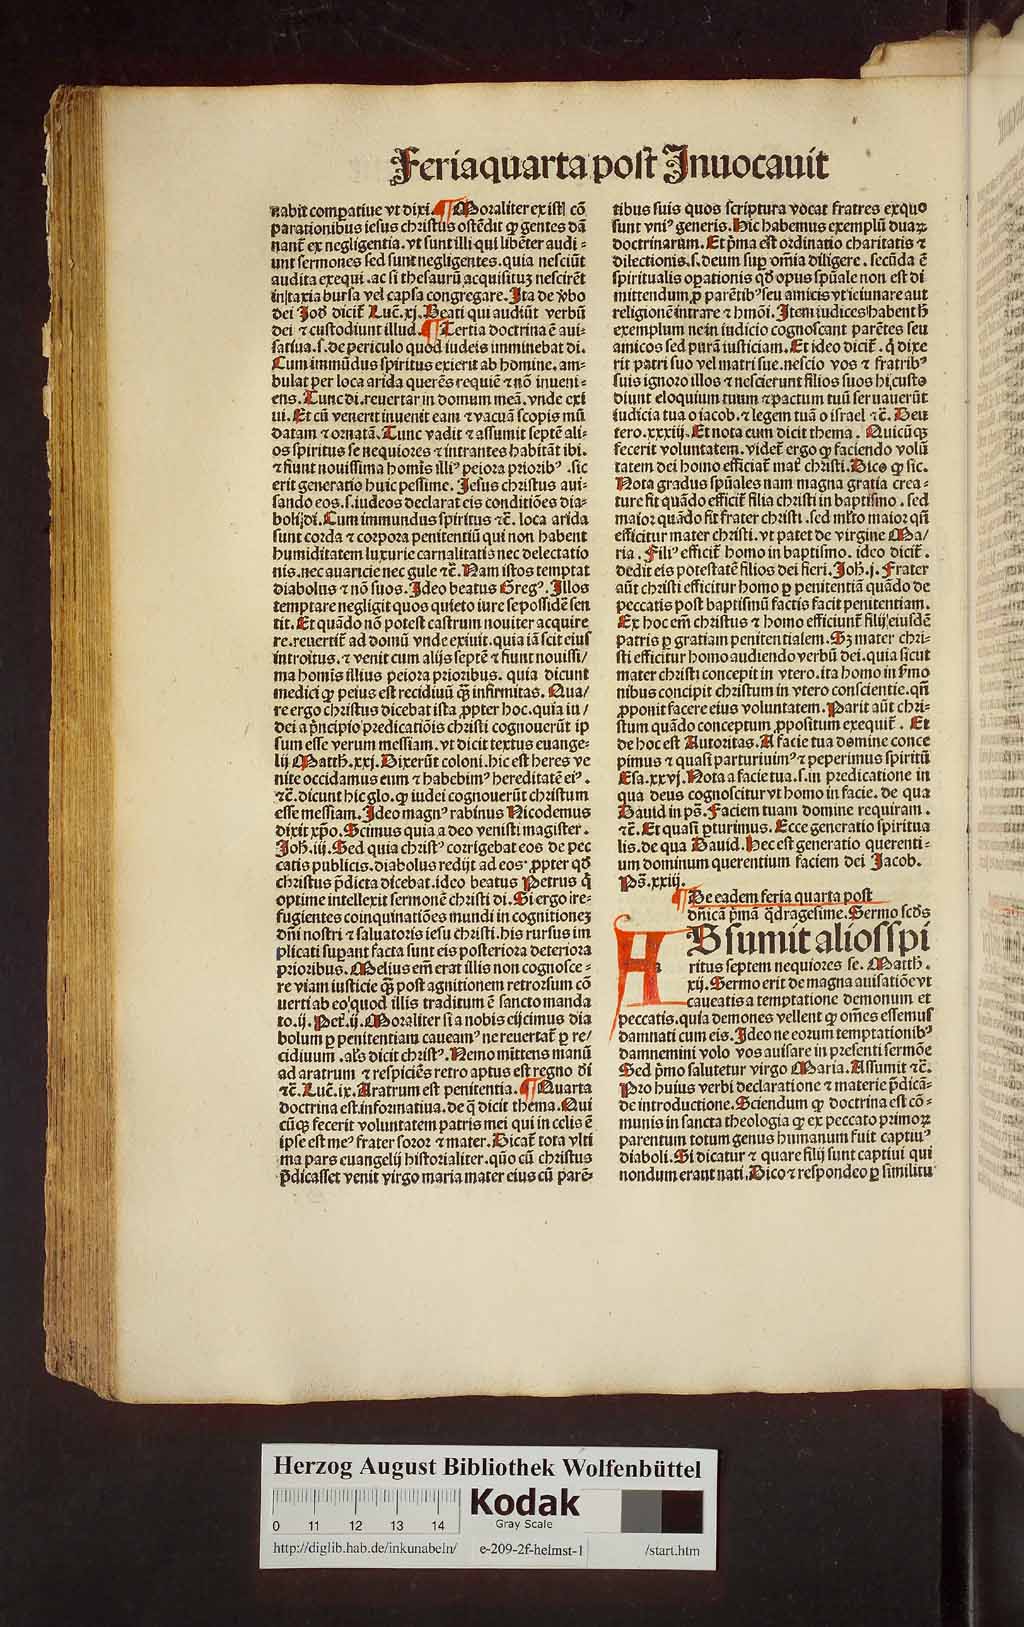 Feria quarta post Inuocauit
nabit compatiue vt dixi. ¶ Moraliter ex istl cō
parationibus iesus christus ostēdit ꝙ gentes dā
nant̄ ex negligentia. vt sunt illi qui libēter audi-
unt sermones sed sunt negligentes. quia nesciūt
audita exequi. ac si thesaurū acquisituꝫ nescirēt
in taxia bursa vel capsa congregare. Ita de v̓bo
dei Job dicit̄ Luc̄. xj. Beati qui audiūt verbū
dei ⁊ custodiunt illud. ¶ Tertia doctrina ē aui-
satiua. s. de periculo quod iudeis imminebat di.
Cum immūdus spiritus exierit ab homine. am-
bulat per loca arida querēs requiē ⁊ nō inueni-
ens. Tunc di. reuertar in domum meā. vnde exi
ui. Et cū venerit inuenit eam ⁊ vacuā scopis mū
datam ⁊ ornatā. Tunc vadit ⁊ assumit septē ali-
os spiritus se nequiores ⁊ intrantes habitāt ibi.
⁊ fiunt nouissima homīs illi⁹ peiora priorib⁹. sic
erit generatio huic pessime. Jesus christus aui-
sando eos. s. iudeos declarat eis conditiōes dia-
boli. di. Cum immundus spiritus ⁊c̄. loca arida
sunt corda ⁊ corpora penitentiū qui non habent
humiditatem luxurie carnalitatis nec delectatio
nis. nec auaricie nec gule ⁊c̄. Nam istos temptat
diabolus ⁊ nō suos. Ideo beatus Greg⁹. Illos
temptare negligit quos quieto iure se possidē sen
tit. Et quādo nō potest castrum nouiter acquire
re. reuertit̄ ad domū vnde exiuit. quia iā scit eius
introitus. ⁊ venit cum alijs septē ⁊ fiunt nouissi/
ma homis illius peiora prioribus. quia dicunt
medici ꝙ peius est recidiuū q̄ꝫ infirmitas. Qua/
re ergo christus dicebat ista ꝓpter hoc. quia iu/
dei a p̄ncipio predicatiōis christi cognouerūt ip
sum esse verum messiam. vt dicit textus euange-
lij Matth. xxj. Dixerūt coloni. hic est heres ve
nite occidamus eum ⁊ habebim⁹ hereditatē ei⁹.
⁊c̄. dicunt hic glo. ꝙ iudei cognouerūt christum
esse messiam. Ideo magn⁹ rabinus Nicodemus
dixit xp̄o. Scimus quia a deo venisti magister.
Joh̄. iij. Sed quia christ⁹ corrigebat eos de pec
catis publicis. diabolus redijt ad eos. ꝓpter qd̄
christus p̄dicta dicebat. ideo beatus Petrus q̄
optime intellexit sermonē christi di. Si ergo re-
fugientes coinquinatiōes mundi in cognitioneꝫ
dn̄i nostri ⁊ saluatoris iesu christi. his rursus im
plicati supant facta sunt eis posteriora deteriora
prioribus. Melius em̄ erat illis non cognosce-
re viam iusticie q̄ꝫ post agnitionem retrorsum cō
uerti ab eo quod illis traditum ē sancto manda
to. ij. Pet̄. ij. Moraliter si a nobis eijcimus dia
bolum ꝑ penitentiam caueam⁹ ne reuertat̄ ꝑ re/
cidiuum. als̄ dicit christ⁹. Nemo mittens manū
ad aratrum ⁊ respiciēs retro aptus est regno di
⁊c̄. Luc̄. ix. Aratrum est penitentia. ¶ Quarta
doctrina est informatiua. de q̄ dicit thema. Qui
cūqꝫ fecerit voluntatem patris mei qui in celis ē
ipse est me⁹ frater soror ⁊ mater. Dicat̄ tota vlti
ma pars euangelij historialiter. quō cū christus
p̄dicasset venit virgo maria mater eius cū parē-
tibus suis quos scriptura vocat fratres ex quo
sunt vni⁹ generis. Hic habemus exemplū duaꝝ
doctrinarum. Et p̄ma est ordinatio charitatis ⁊
dilectionis. s. deum sup om̄ia diligere. secūda ē
spiritualis opationis qd̄ opus spūale non est di
mittendum ꝓ parētib⁹ seu amicis vt ieiunare aut
religionē intrare ⁊ hmōi. Item iudices habent h̄
exemplum ne in iudicio cognoscant parētes seu
amicos sed purā iusticiam. Et ideo dicit̄. q̄ dixe
rit patri suo vel matri sue. nescio vos ⁊ fratrib⁹
suis ignoro illos ⁊ nescierunt filios suos hi. custo
diunt eloquium tuum ⁊ pactum tuū seruauerūt
iudicia tua o iacob. ⁊ legem tuā o israel ⁊c̄. Deu
tero. xxxiij. Et nota cum dicit thema. Quicūqꝫ
fecerit voluntatem. videt̄ ergo ꝙ faciendo volū
tatem dei homo efficiat̄ mat̄ christi. Dico ꝙ sic.
Nota gradus spūales nam magna gratia crea-
ture fit quādo efficit̄ filia christi in baptismo. sed
maior quādo fit frater christi. sed ml̄to maior qn̄
efficitur mater christi. vt patet de virgine Ma/
ria. Fili⁹ efficit̄ homo in baptismo. ideo dicit̄.
dedit eis potestatē filios dei fieri. Joh̄. j. Frater
aūt christi efficitur homo ꝑ penitentiā quādo de
peccatis post baptismū factis facit penitentiam.
Ex hoc em̄ christus ⁊ homo efficiunt̄ filij eiusdē
patris ꝑ gratiam penitentialem. Sꝫ mater chri-
sti efficitur homo audiendo verbū dei. quia sicut
mater christi concepit in vtero. ita homo in s̄mo
nibus concipit christum in vtero conscientie. qn̄
ꝓponit facere eius voluntatem. Parit aūt chri-
stum quādo conceptum ꝓpositum exequit̄. Et
de hoc est Autoritas. A facie tua domine conce
pimus ⁊ quasi parturiuim⁹ ⁊ peperimus spiritū
Esa. xxvj. Nota a facie tua. s. in predicatione in
qua deus cognoscitur vt homo in facie. de qua
Dauid in ps̄. Faciem tuam domine requiram.
⁊c̄. Et quasi ꝑturimus. Ecce generatio spiritua
lis. de qua Dauid. Hec est generatio querenti-
um dominum querentium faciem dei Jacob.
Ps̄. xxiij.
¶ De eadem feria quarta post
dn̄icā p̄mā q̄dragesime. Sermo scd̄s
ASsumit alios spi
ritus septem nequiores se. Matth.
xij. Sermo erit de magna auisatiōe vt
caueatis a temptatione demonum et
peccatis. quia demones vellent ꝙ om̄es essemus
damnati cum eis. Ideo ne eorum temptationib⁹
damnemini volo vos auisare in presenti sermōe
Sed p̄mo salutetur virgo Maria. Assumit ⁊c̄.
Pro huius verbi declaratione ⁊ materie p̄dicā-
de introductione. Sciendum ꝙ doctrina est cō-
munis in sancta theologia ꝙ ex peccato primoꝝ
parentum totum genus humanum fuit captiu⁹
diaboli. Si dicatur ⁊ quare filij sunt captiui qui
nondum erant nati. Dico ⁊ respondeo ꝑ similitu
Herzog August Bibliothek Wolfenbüttel
Kodak
Gray Scale
0 11 12 13 14
http://diglib.hab.de/inkunabeln/ e-209-2f-helmst-1 /start.htm